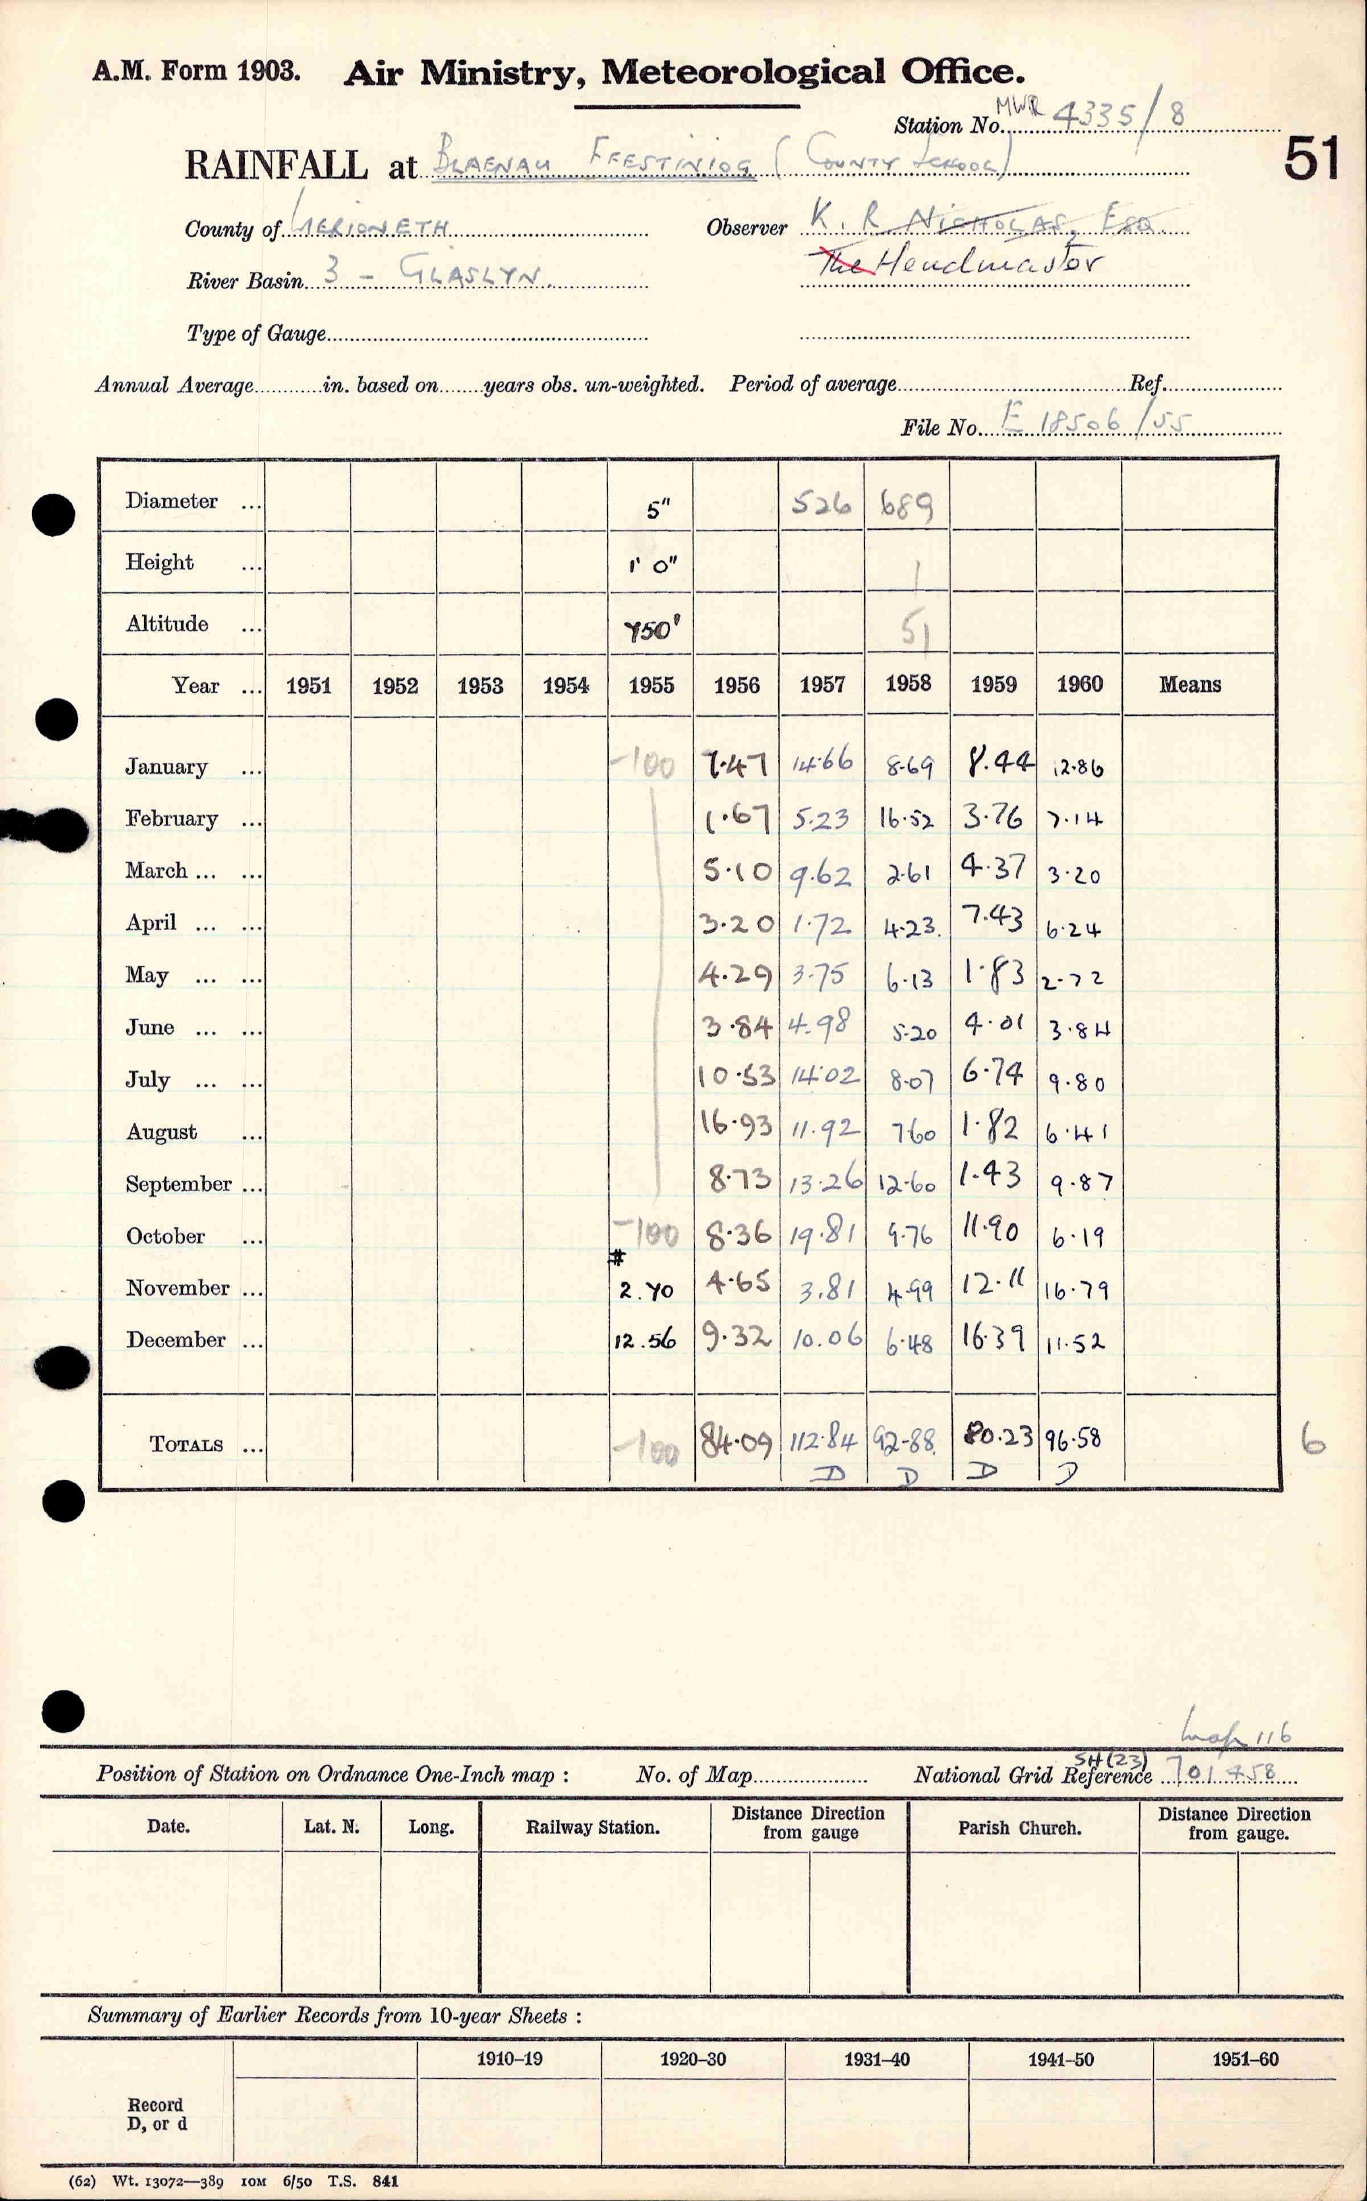 A.M. Form 1903. Air Ministry, Meteorological Office.
Station No. MWR 4335/8
51
RAINFALL at BLAENAU FFESTINIOG (COUNTY SCHOOL)
County of MERIONETH Observer K. R NICHOLAS, ESQ.
The Headmaster
River Basin 3 - GLASLYN.
Type of Gauge
Annual Average in. based on years obs. un-weighted. Period of average Ref.
File No. E 18506/55
Diameter ... 5" 526 689
Height ... 1' 0" 1
Altitude ... 750' 51
Year ... 1951 1952 1953 1954 1955 1956 1957 1958 1959 1960 Means
January ... -100 7.47 14.66 8.69 8.44 12.86
February ... 1.67 5.23 16.52 3.76 7.14
March ... ... 5.10 9.62 2.61 4.37 3.20
April ... ... 3.20 1.72 4.23. 7.43 6.24
May ... ... 4.29 3.75 6.13 1.83 2.72
June ... ... 3.84 4.98 5.20 4.01 3.84
July ... ... 10.53 14.02 8.07 6.74 9.80
August ... 16.93 11.92 7.60 1.82 6.41
September ... 8.73 13.26 12.60 1.43 9.87
October ... -100 8.36 19.81 9.76 11.90 6.19
November ... # 2.70 4.65 3.81 4.99 12.11 16.79
December ... 12.56 9.32 10.06 6.48 16.39 11.52
TOTALS ... -100 84.09 112.84 92.88 80.23 96.58 6
D D D D
Map 116
Position of Station on Ordnance One-Inch map : No. of Map National Grid Reference SH(23) 701458
Date. Lat. N. Long. Railway Station. Distance Direction from gauge Parish Church. Distance Direction from gauge.
Summary of Earlier Records from 10-year Sheets :
1910–19 1920–30 1931–40 1941–50 1951–60
Record
D, or d
(62) Wt. 13072—389 10M 6/50 T.S. 841